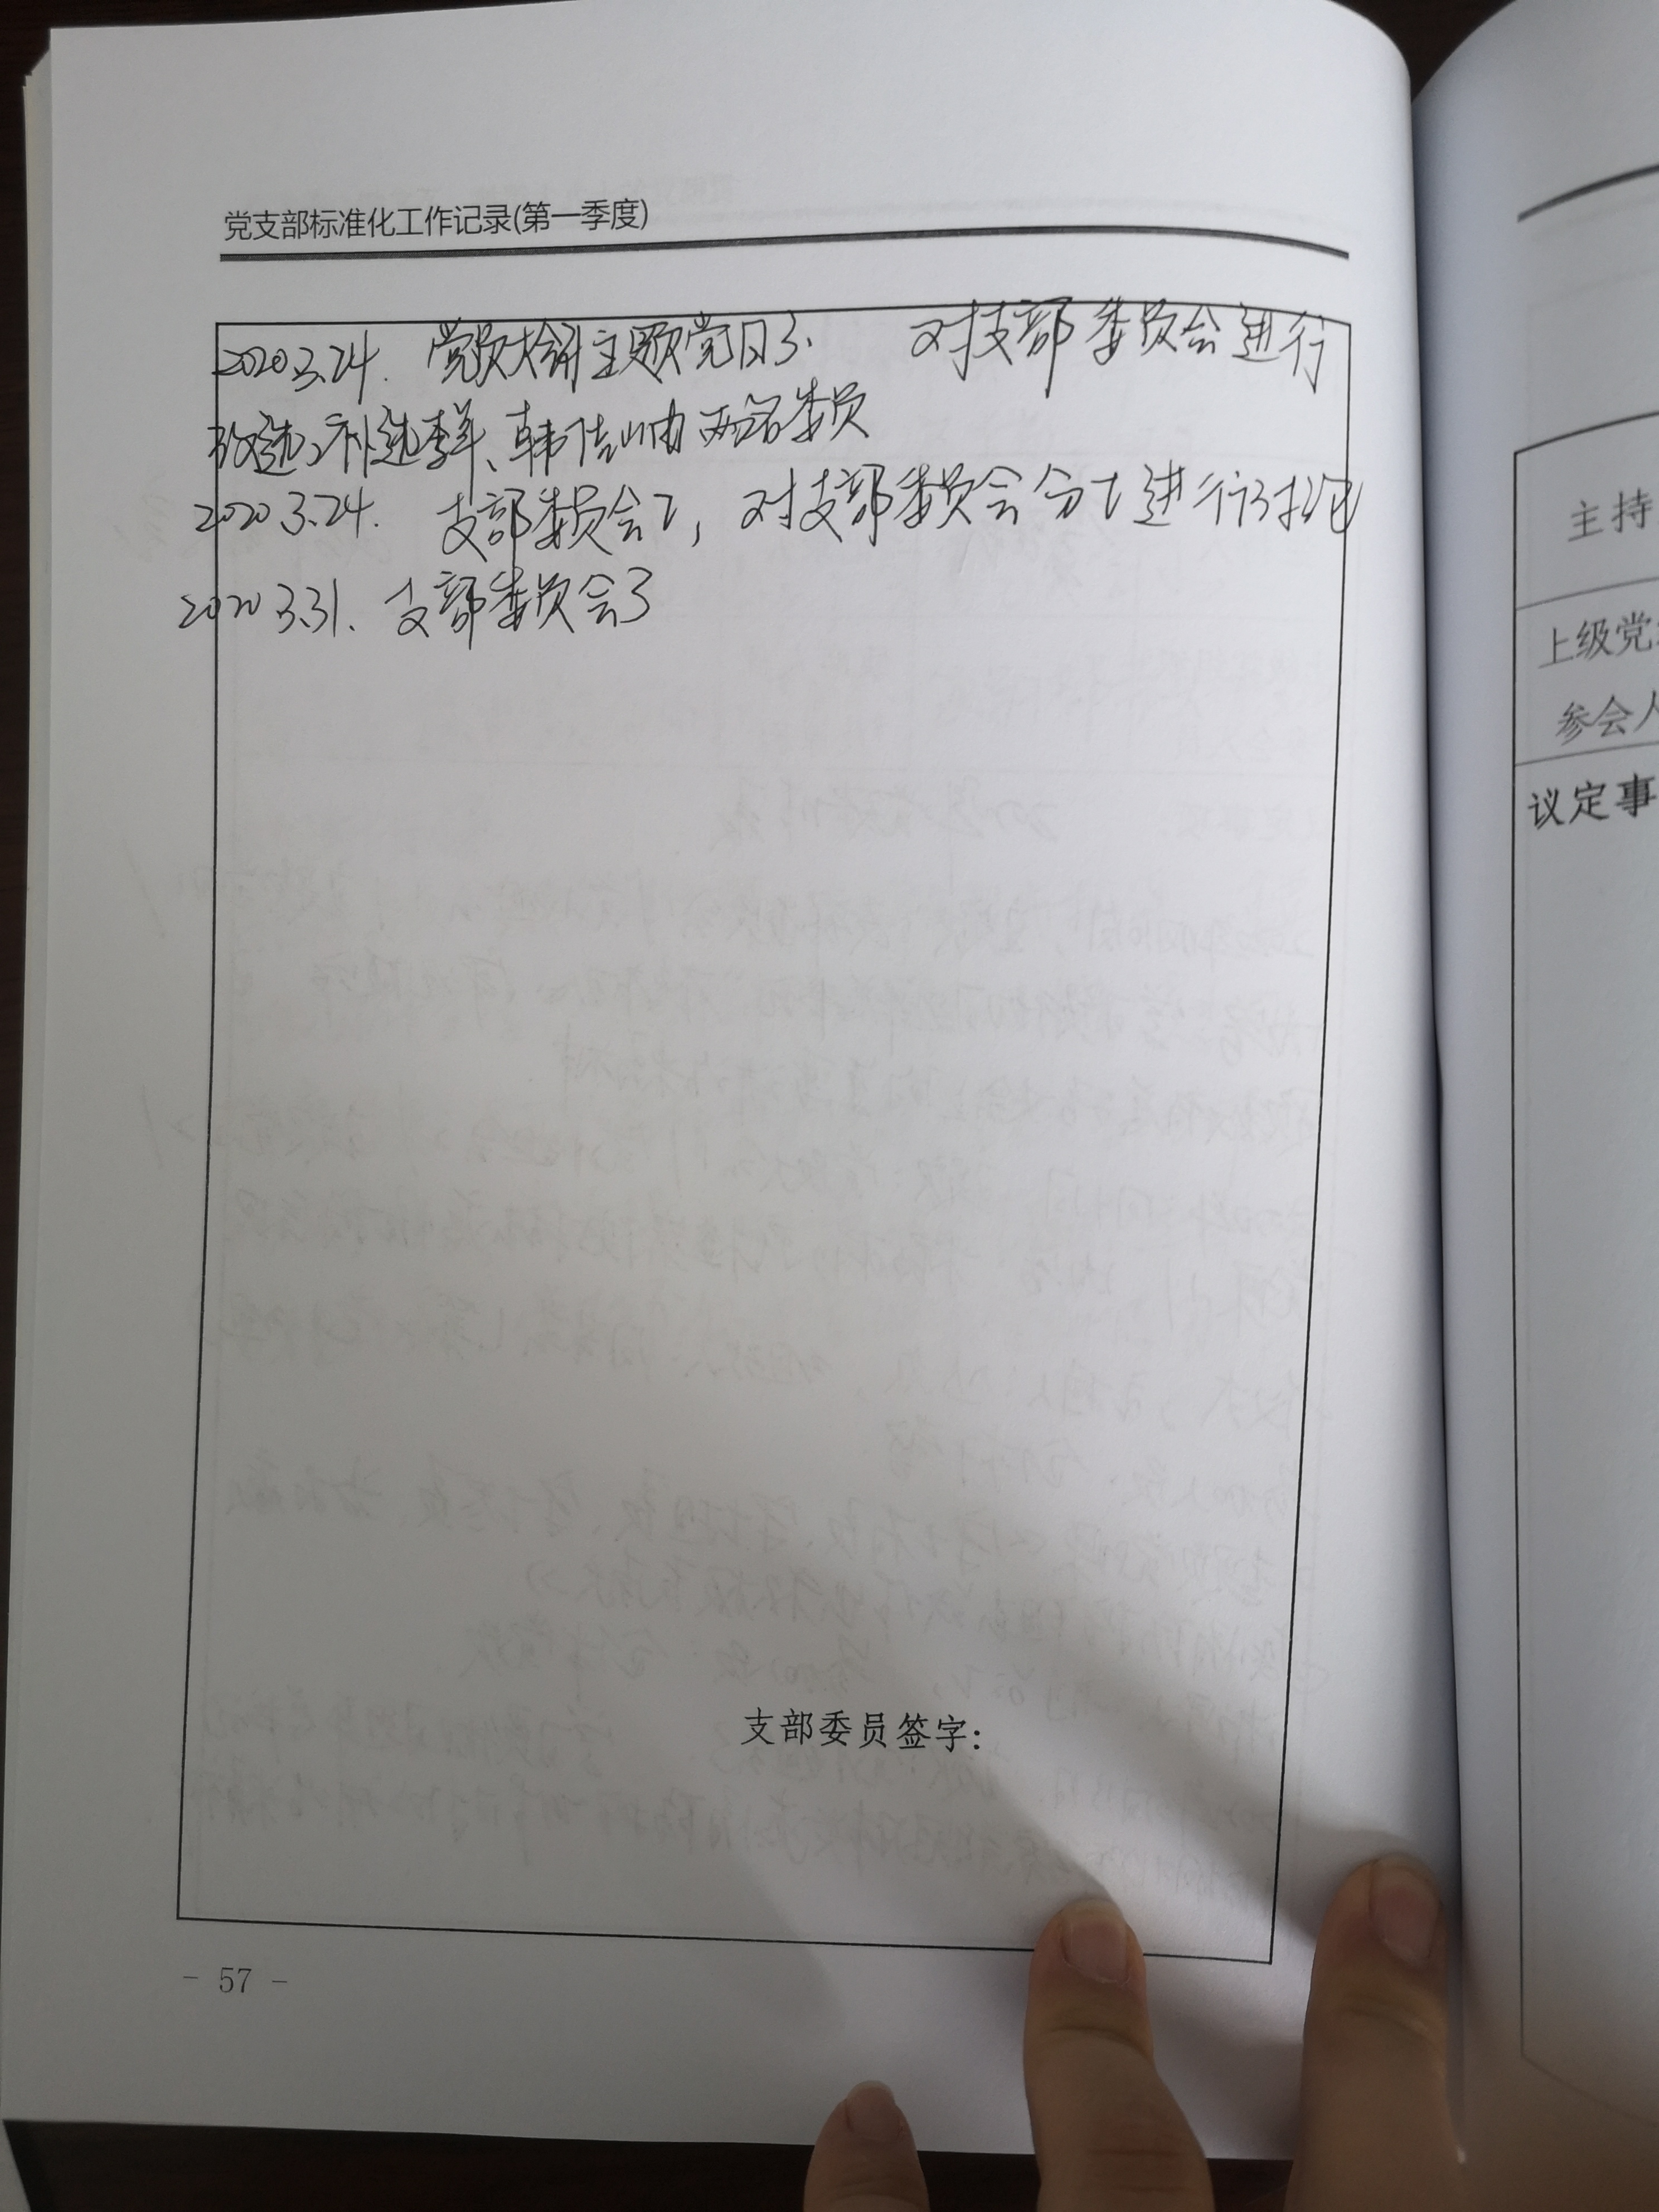 党支部标准化工作记录(第一季度)
2020 3.24. 党员大会暨主题党日3. 对支部委员会进行
改选,补选李羊、韩佶岫两名委员
2020 3.24. 支部委员会2, 对支部委员会分工进行讨论
2020 3.31. 支部委员会3
支部委员签字:
- 57 -
主持
上级党
参会人
议定事